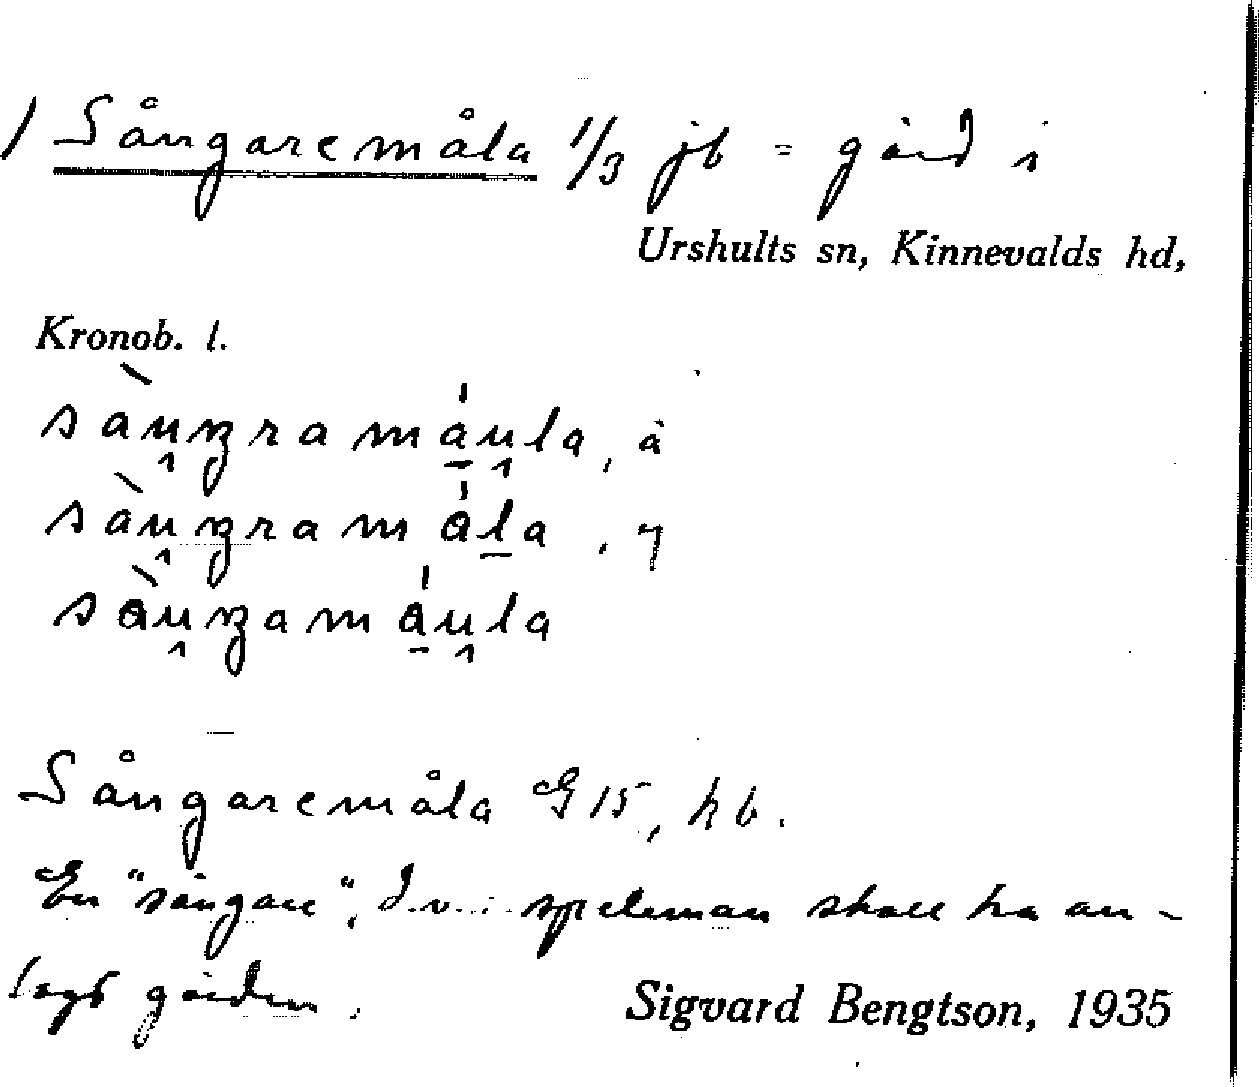 1) Sångaremåla 1/3 jb = gård i
Urshults sn, Kinnevalds hd,
Kronob. l.
sàu̯ŋramáu̯la, å
sàu̯ŋramåla, ŋ
sàu̯ŋamáu̯la
Sångaremåla G 15, hb.
En "sångare", d.v.s. speleman skall ha an-
lagt gården.
Sigvard Bengtson, 1935